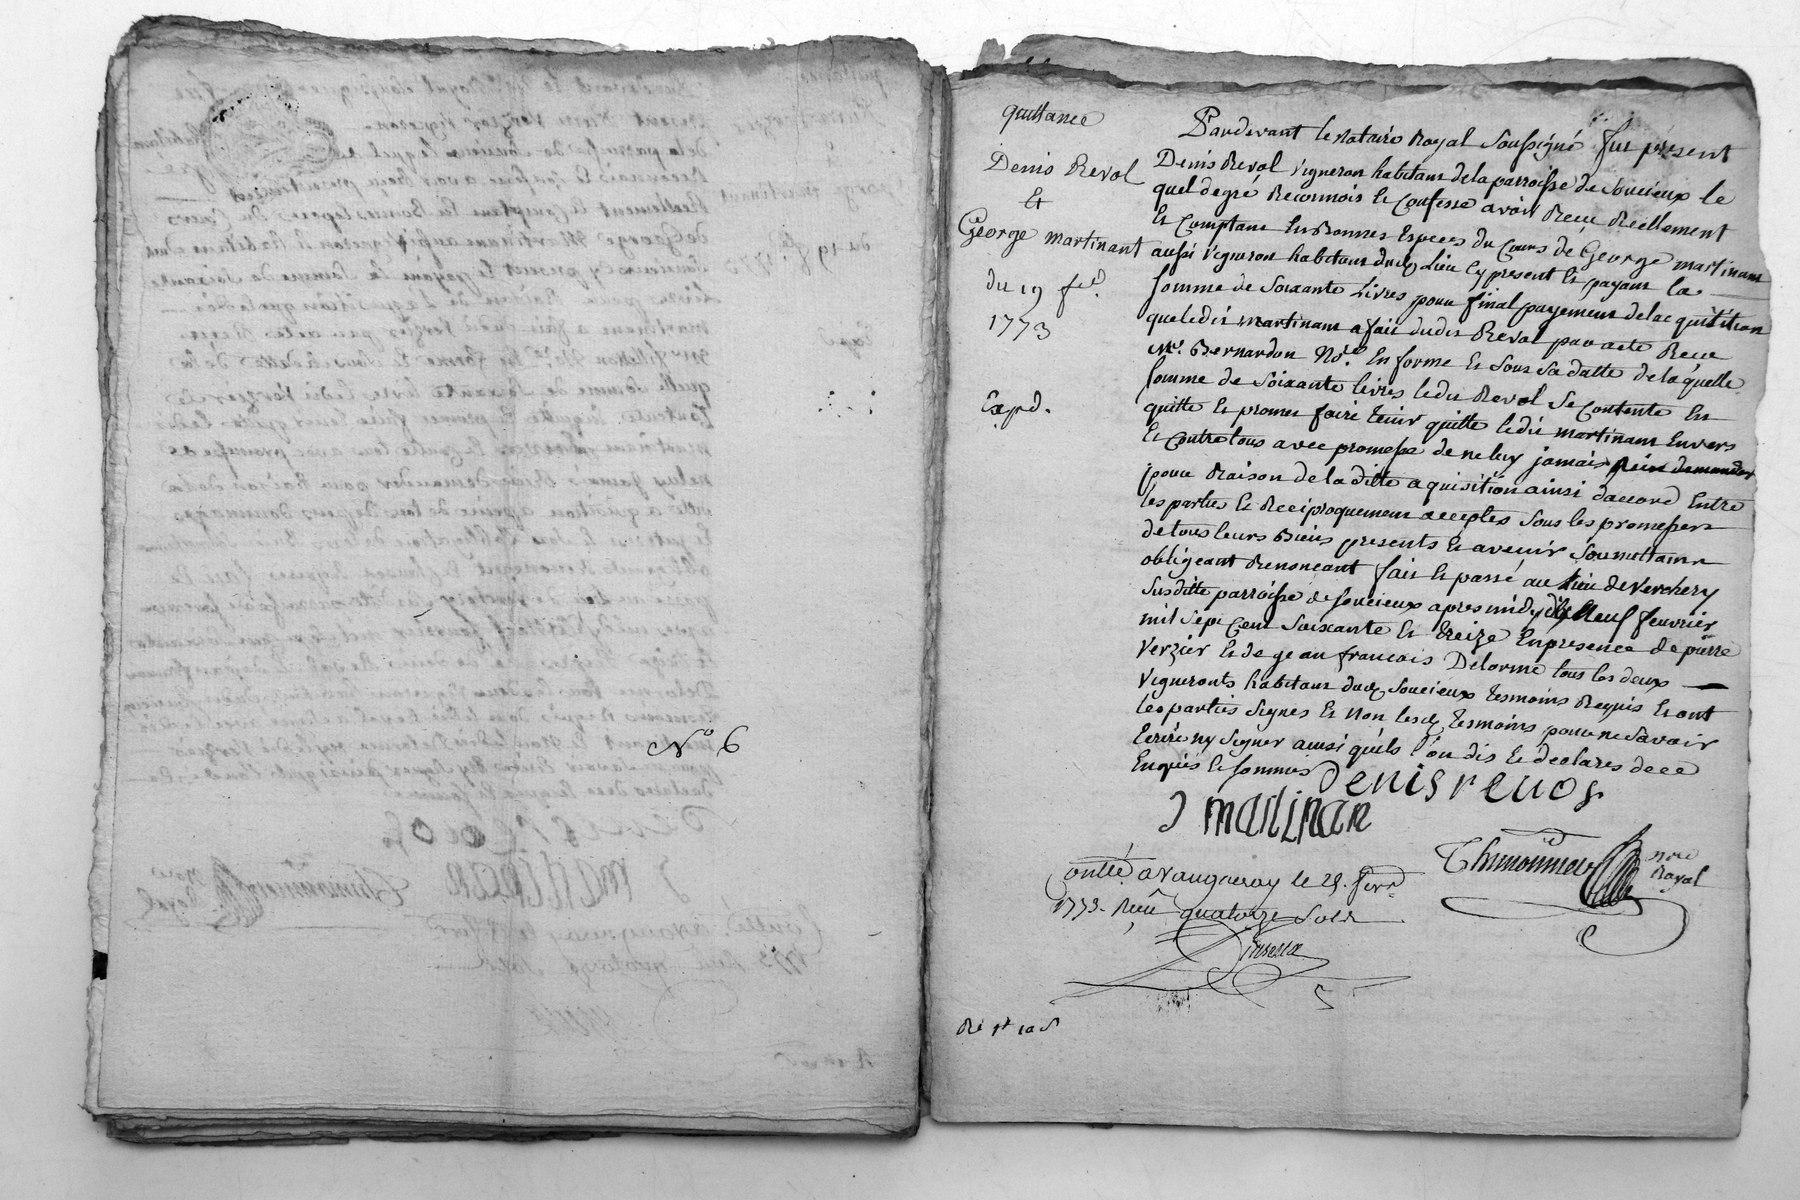 N.º 6
quittance
Denis Revol
Et
George martinant
du 19 fed.
1773
Exped.
Pardevant le notaire Royal Soussigné fut présent
Denis Revol vigneron habitant de la parroisse de Soucieux le
quel de gré Reconnois Et Confesse avoir Receu Reellement
Et Comptant En Bonnes Especes du Cours de George martinant
aussi vigneron habitant dud. Lieu Cy present Et payant la
somme de Soixante Livres pour final payement de lac quisition
que ledit martinant a fait dudit Revol par acte Receu
Me. Bernardon No.re En forme Et Sous Sa datte de laquelle
somme de Soixante livres ledit Revol Se Contente En
quitte Et promet faire tenir quitte ledit martinant Envers
Et Contre tous avec promesse de ne luy jamais Rien demander
pour Raison de la ditte aquisition ainsi daccord Entre
les parties Et Reciproquement acceptés Sous les promesses
de tous leurs Biens presents Et avenir Soumettant
obligeant Renonceant fait Et passé au lieu de Verchery
Susditte parroisse de Soucieux apres midy dix Neuf feuvrier
mil Sept Cent Soixante Et Treize En presence de pierre
Verzier Et de gean francois Delorme tous les deux
vigneronts habitant dud. Soucieux tesmoins Requis Et ont
les parties Signes Et Non lesd. tesmoins pour ne Savoir
Ecrire ny Signer ainsi quils l'on dit Et declares de ce
Enquis Et sommés
Denis revol
J martinan
Thimonnier nore
Royal
Contlé a vaugneray le 25. fevr.
1773. Reçu quatorze Sols
Re 1t 10 s